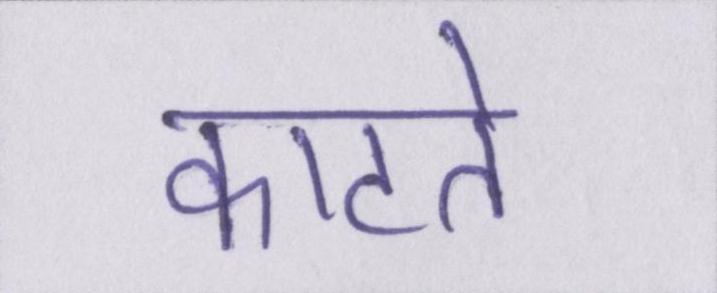 काटते